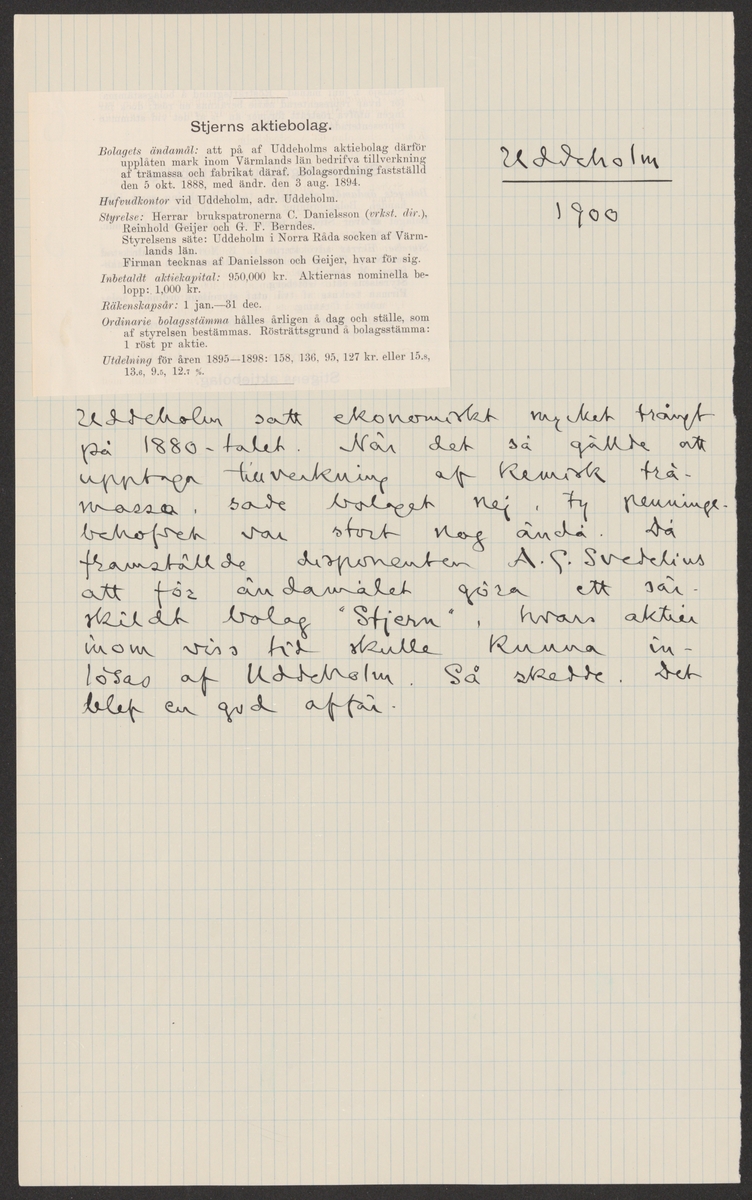 Stjerns aktiebolag.
Bolagets ändamål: att på af Uddeholms aktiebolag därför
upplåten mark inom Värmlands län bedrifva tillverkning
af trämassa och fabrikat däraf. Bolagsordning fastställd
den 5 okt. 1888, med ändr. den 3 aug. 1894.
Hufvudkontor vid Uddeholm, adr. Uddeholm.
Styrelse: Herrar brukspatronerna C. Danielsson (verkst. dir.),
Reinhold Geijer och G. F. Berndes.
Styrelsens säte: Uddeholm i Norra Råda socken af Värm-
lands län.
Firman tecknas af Danielsson och Geijer, hvar för sig.
Inbetaldt aktiekapital: 950,000 kr. Aktiernas nominella be-
lopp: 1,000 kr.
Räkenskapsår: 1 jan.—31 dec.
Ordinarie bolagsstämma hålles årligen å dag och ställe, som
af styrelsen bestämmas. Rösträttsgrund å bolagsstämma:
1 röst pr aktie.
Utdelning för åren 1895—1898: 158, 136, 95, 127 kr. eller 15.8,
13.6, 9.5, 12.7 %.
Uddeholm
1900
Uddeholm satt ekonomiskt mycket trångt
på 1880-talet. När det så gällde att
upptaga tillverkning af kemisk trä-
massa, sade bolaget nej, ty penninge-
behofvet var stort nog ändå. Då
framställde disponenten A. G. Svedelius
att för ändamålet göra ett sär-
skildt bolag "Stjern", hvars aktier
inom viss tid skulle kunna in-
lösas af Uddeholm. Så skedde. Det
blef en god affär.